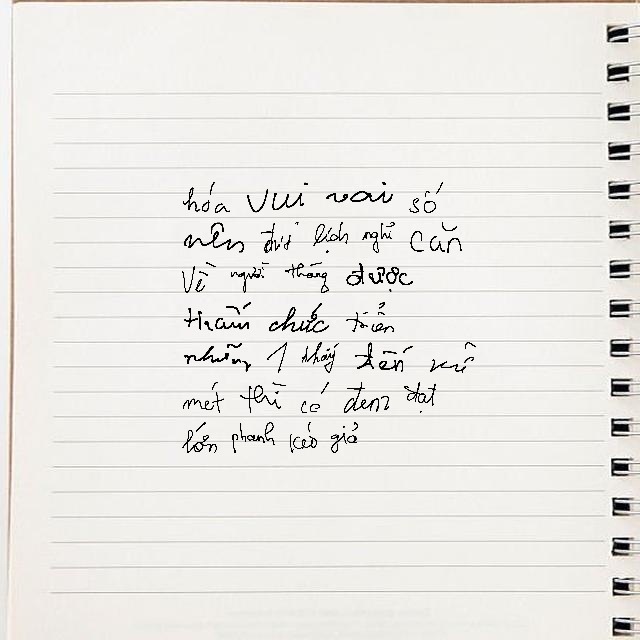 hóa vui vai số
nên đưi lịch nghỉ căn
về người tháng được
chức triển
những 1 tháy đến
mét thì có đem đạt
lớn phanh kéo giả